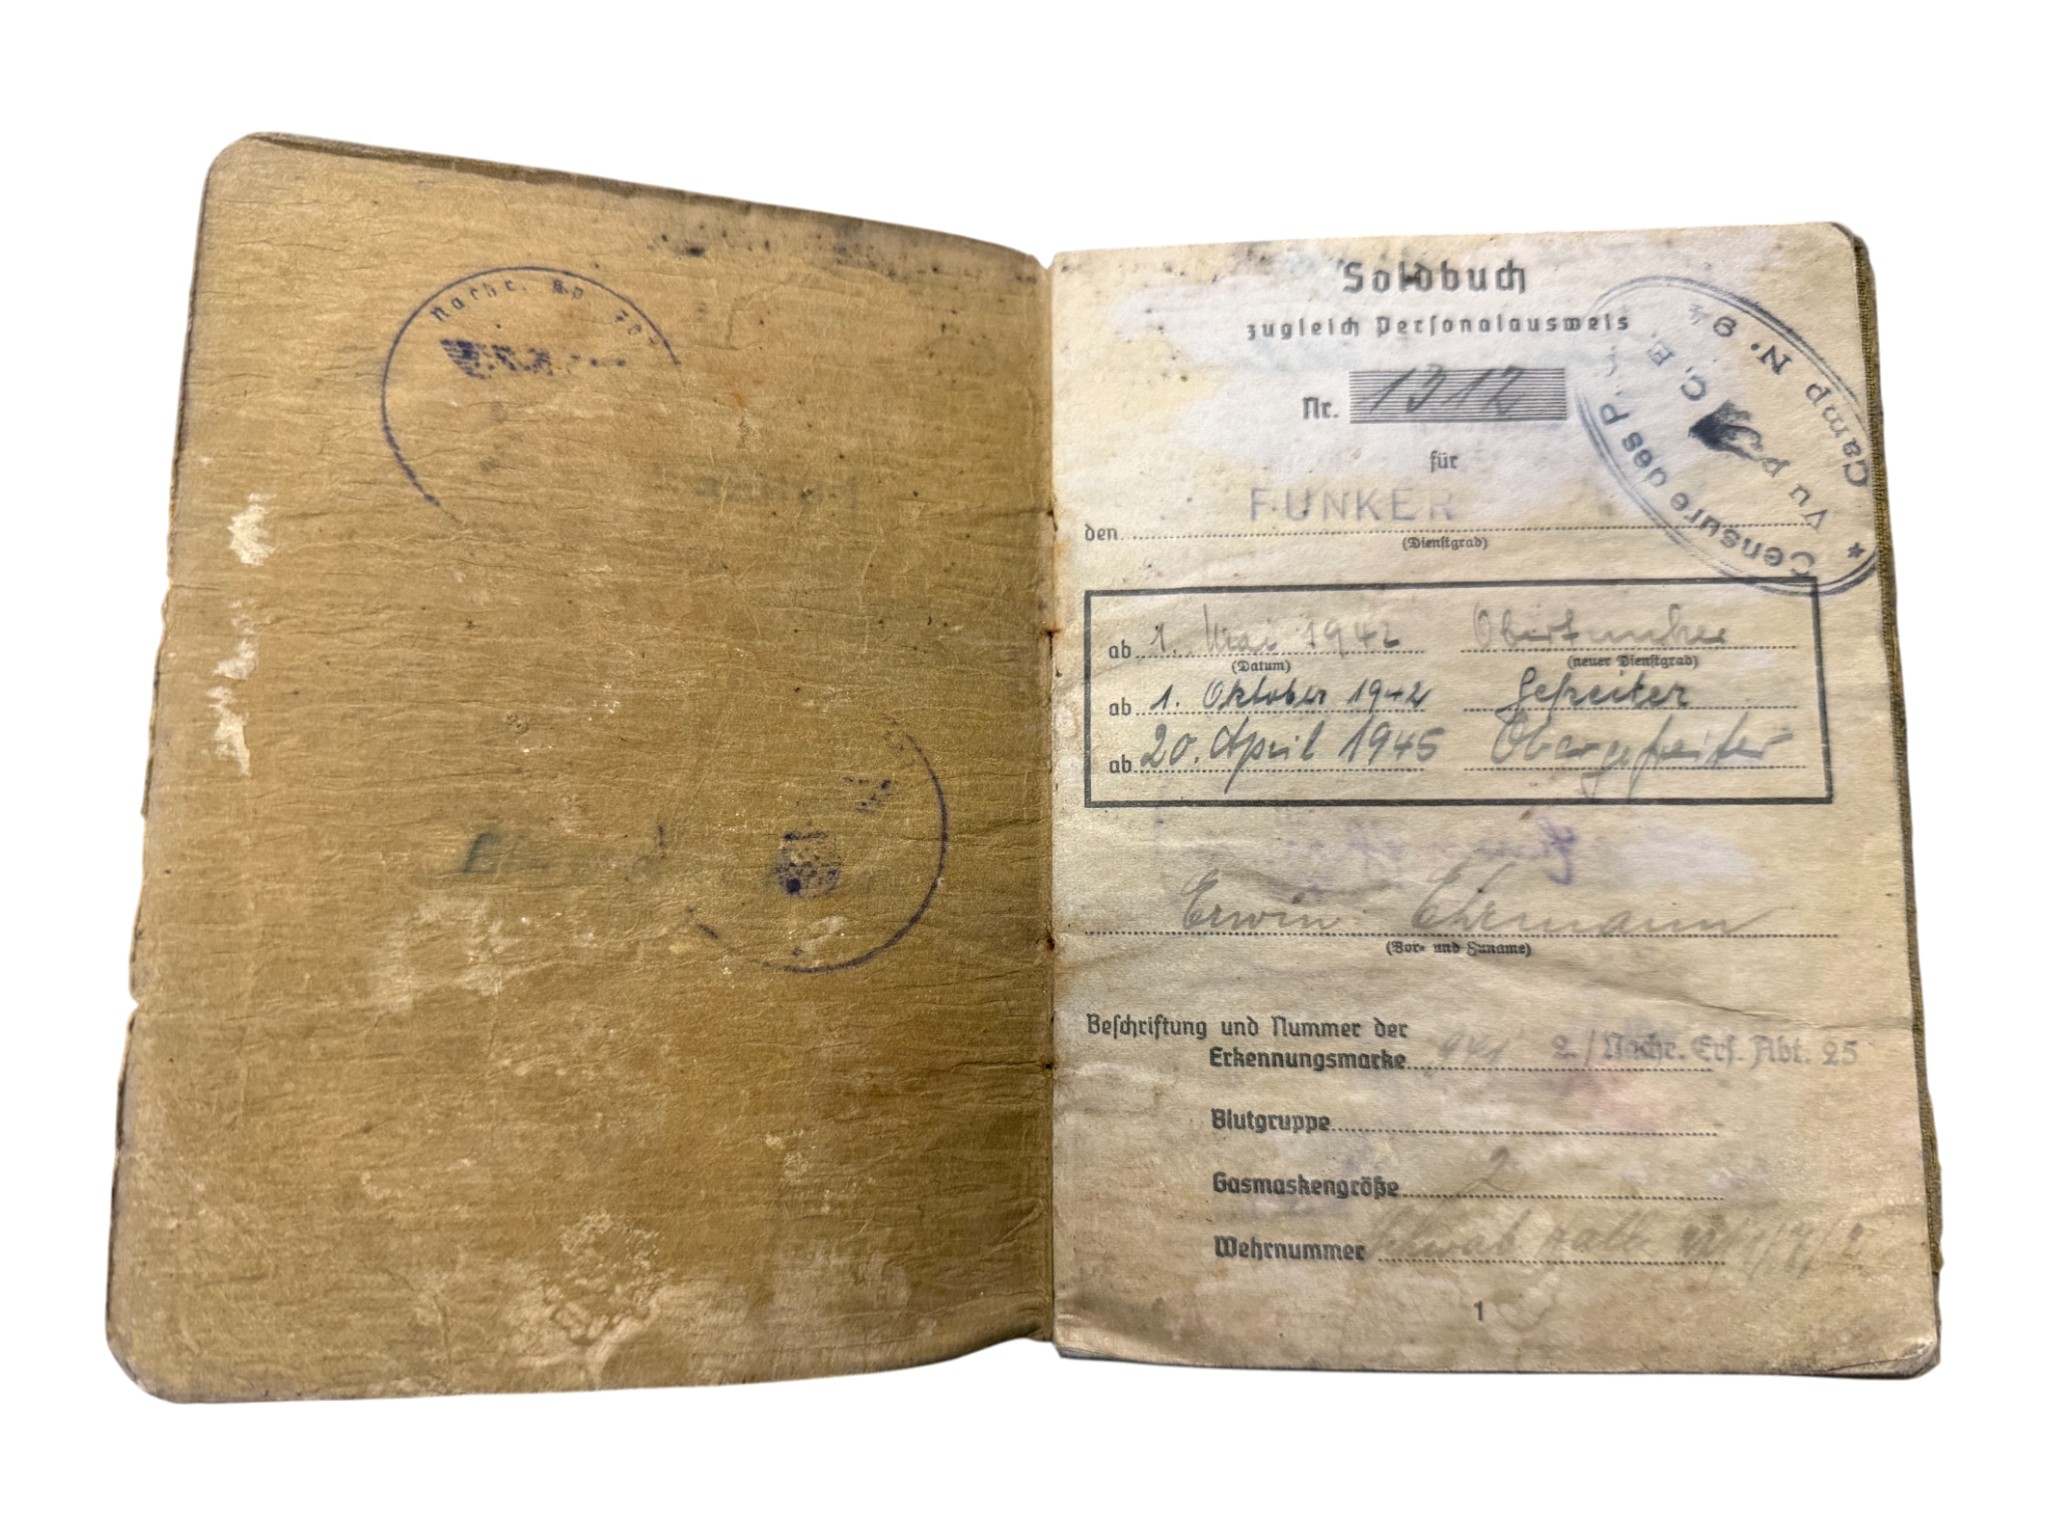 Nachr.
Soldbuch
zugleich Personalausweis
Nr. 1312
für
den FUNKER
(Dienstgrad)
ab 1. Mai 1942 Oberfunker
(Datum) (neuer Dienstgrad)
ab 1. Oktober 1942 Gefreiter
ab 20. April 1945 Obergefreiter
Erwin Ehrmann
(Vor- und Zuname)
Beschriftung und Nummer der
Erkennungsmarke 941 2/Nachr. Ers. Abt. 25
Blutgruppe
Gasmaskengröße 2
Wehrnummer
1
Censure des P.
C. E.
Vu
Camp N.